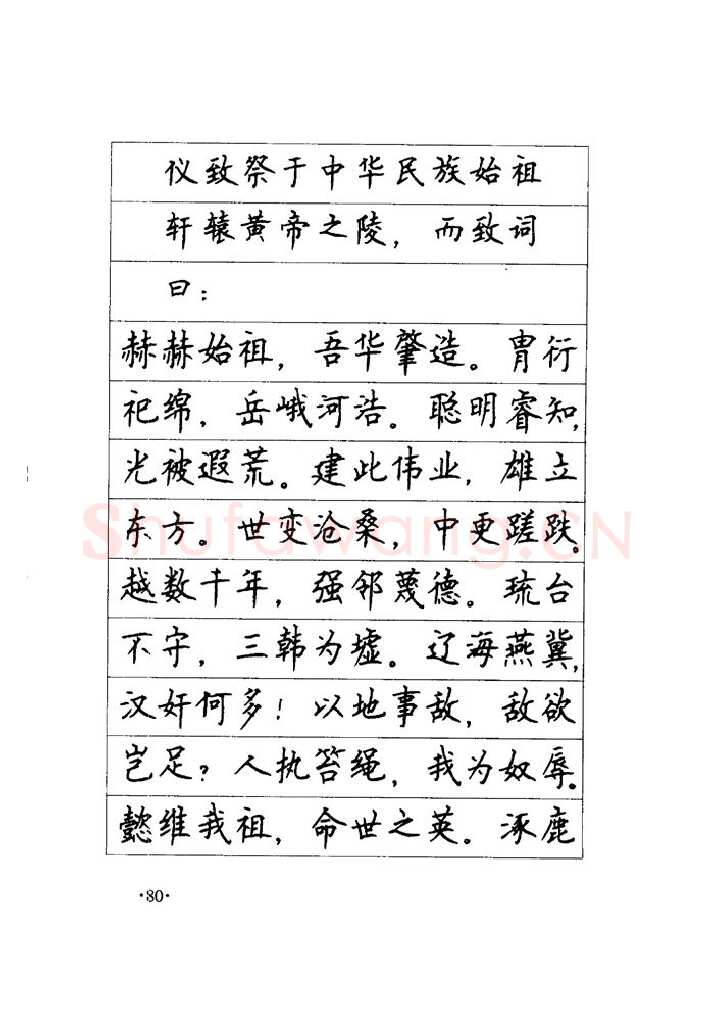 仪致祭于中华民族始祖
轩辕黄帝之陵，而致词
曰：
赫赫始祖，吾华肇造。胄衍
祀绵，岳峨河浩。聪明睿知，
光被遐荒。建此伟业，雄立
东方。世变沧桑，中更蹉跌。
越数千年，强邻蔑德。琉台
不守，三韩为墟。辽海燕冀，
汉奸何多！以地事敌，敌欲
岂足？人执笞绳，我为奴辱。
懿维我祖，命世之英。涿鹿
·80·
Shufawang.CN